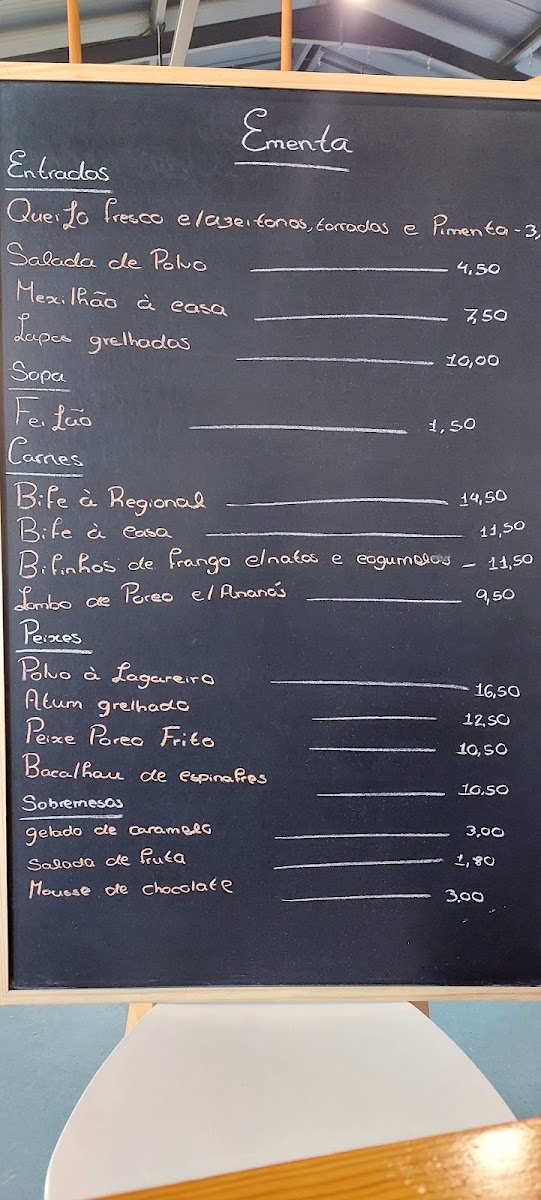 Ementa
Entradas
Queijo fresco c/azeitonas, torradas e Pimenta - 3,
Salada de Polvo 4,50
Mexilhão à casa 7,50
Lapas grelhadas 10,00
Sopa
Feijão 1,50
Carnes
Bife à Regional 14,50
Bife à casa 11,50
Bifinhos de frango c/natas e cogumelos - 11,50
Lombo de Porco c/Ananás 9,50
Peixes
Polvo à Lagareiro 16,50
Atum grelhado 12,50
Peixe Porco Frito 10,50
Bacalhau de espinafres 10.50
Sobremesas
gelado de caramelo 3,00
Salada de fruta 1,80
Mousse de chocolate 3,00